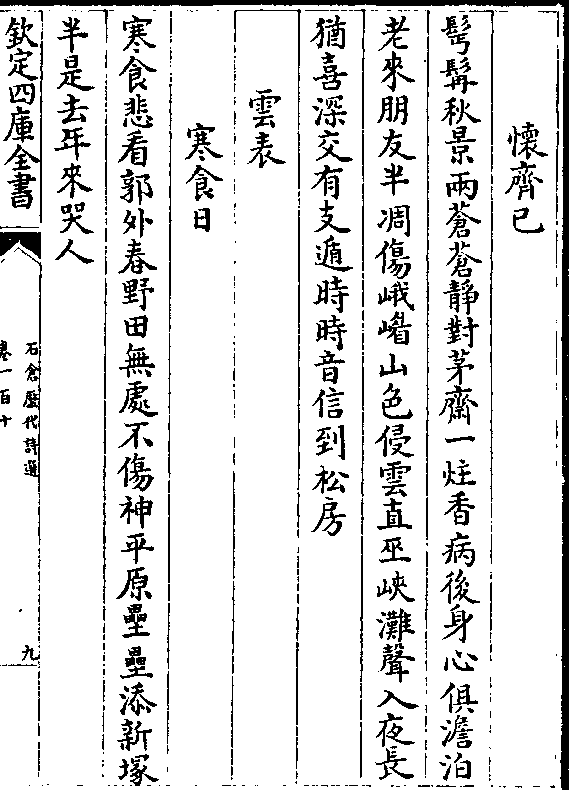 懷齊已
髩髯秋景兩蒼蒼靜對茅齋一炷香病後身心俱澹泊
老來朋友半凋傷峨嵋山色侵雲直巫峽灘聲入夜長
猶喜深交有支遁時時音信到松房
雲表
寒食日
寒食悲看郭外春野田無處不傷神平原壘壘添新塚
半是去年來哭人
欽定四庫全書
石倉歷代詩選
卷一百十
九